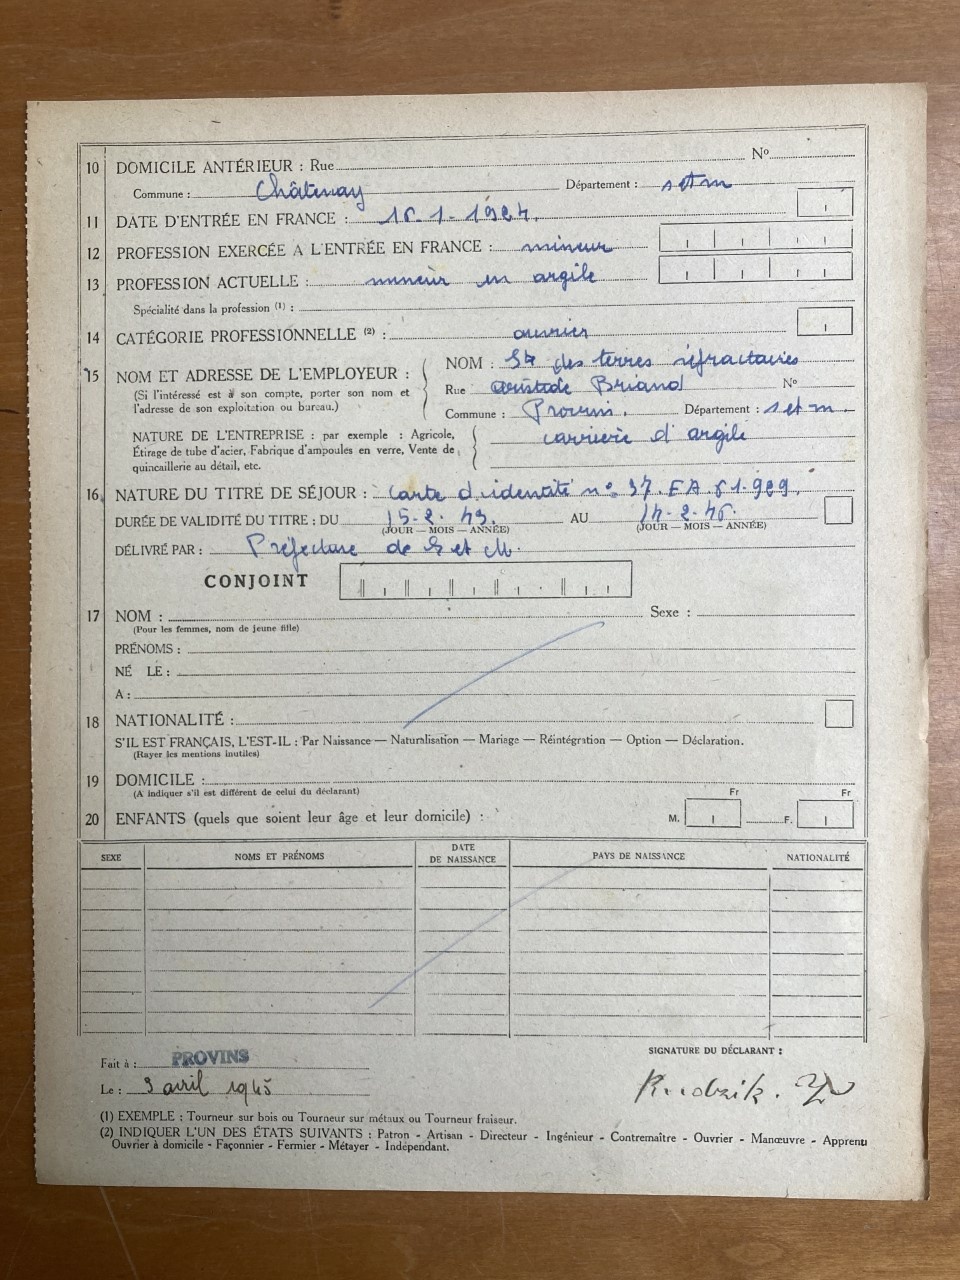 10 DOMICILE ANTÉRIEUR : Rue Nº
Commune : Châtenay Département : setm
11 DATE D'ENTRÉE EN FRANCE : 1924.
12 PROFESSION EXERCÉE A L'ENTRÉE EN FRANCE : mineur
13 PROFESSION ACTUELLE : mineur en argile
Spécialité dans la profession (1) :
14 CATÉGORIE PROFESSIONNELLE (2) : ouvrier
15 NOM ET ADRESSE DE L'EMPLOYEUR :
(Si l'intéressé est à son compte, porter son nom et
l'adresse de son exploitation ou bureau.)
NOM : Sté des terres réfractaires
Rue aristide Briand Nº
Commune : Provins. Département : set m
NATURE DE L'ENTREPRISE : par exemple : Agricole,
Étirage de tube d'acier, Fabrique d'ampoules en verre, Vente de
quincaillerie au détail, etc.
carrière d'argile
16 NATURE DU TITRE DE SÉJOUR : Carte d'identité nº
DURÉE DE VALIDITÉ DU TITRE : DU 15-2-43. AU 14-2-46.
(JOUR — MOIS — ANNÉE) (JOUR — MOIS — ANNÉE)
DÉLIVRÉ PAR : Préfecture de S et M.
CONJOINT
17 NOM : Sexe :
(Pour les femmes, nom de jeune fille)
PRÉNOMS :
NÉ LE :
A :
18 NATIONALITÉ :
S'IL EST FRANÇAIS, L'EST-IL : Par Naissance — Naturalisation — Mariage — Réintégration — Option — Déclaration.
(Rayer les mentions inutiles)
19 DOMICILE :
(A indiquer s'il est différent de celui du déclarant)
Fr Fr
20 ENFANTS (quels que soient leur âge et leur domicile) : M. F.
SEXE NOMS ET PRÉNOMS DATE DE NAISSANCE PAYS DE NAISSANCE NATIONALITÉ
Fait à : PROVINS
Le : 3 avril 1945
SIGNATURE DU DÉCLARANT :
Rudzik.
(1) EXEMPLE : Tourneur sur bois ou Tourneur sur métaux ou Tourneur fraiseur.
(2) INDIQUER L'UN DES ÉTATS SUIVANTS : Patron - Artisan - Directeur - Ingénieur - Contremaître - Ouvrier - Manœuvre - Apprenti
Ouvrier à domicile - Façonnier - Fermier - Métayer - Indépendant.